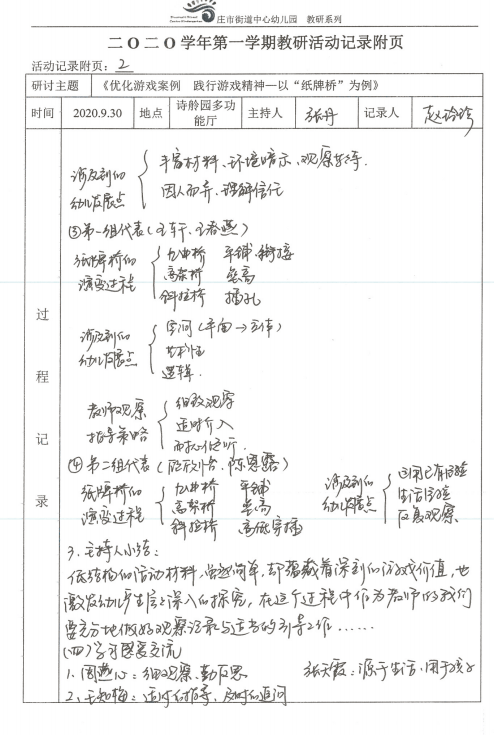 庄市街道中心幼儿园 教研系列
二〇二〇学年第一学期教研活动记录附页
活动记录附页：2
研讨主题 《优化游戏案例 践行游戏精神—以“纸牌桥”为例》
时间 2020.9.30 地点 诗舲园多功能厅 主持人 张丹 记录人 赵玲珍
过程记录
涉及到的幼儿发展点 丰富材料、环境暗示、观察等待.
因人而异、理解信任
③第一组代表(王轩、王春燕)
纸牌桥的演变过程 九曲桥 平铺、衔接
高架桥 垒高
斜拉桥 插孔
涉及到的幼儿发展点 空间(平面→立体)
艺术性
逻辑.
教师观察指导策略 细致观察
适时介入
耐心倾听.
④第二组代表( 陈恩露)
纸牌桥的演变过程 九曲桥 平铺
高架桥 垒高
斜拉桥 高低穿插
涉及到的幼儿发展点 已有经验
生活经验
反复观察.
3.主持人小结:
低结构的活动材料,虽然简单,却蕴藏着深刻的游戏价值,也
激发幼儿产生层层深入的探究,在这个过程中作为教师的我们
要充分地做好观察记录与适当的引导工作……
(四)学习感受交流
1.周燕心:细观察、勤反思 张天霞:源于生活,用于孩子
2.王知梅:适时的指导、及时的追问